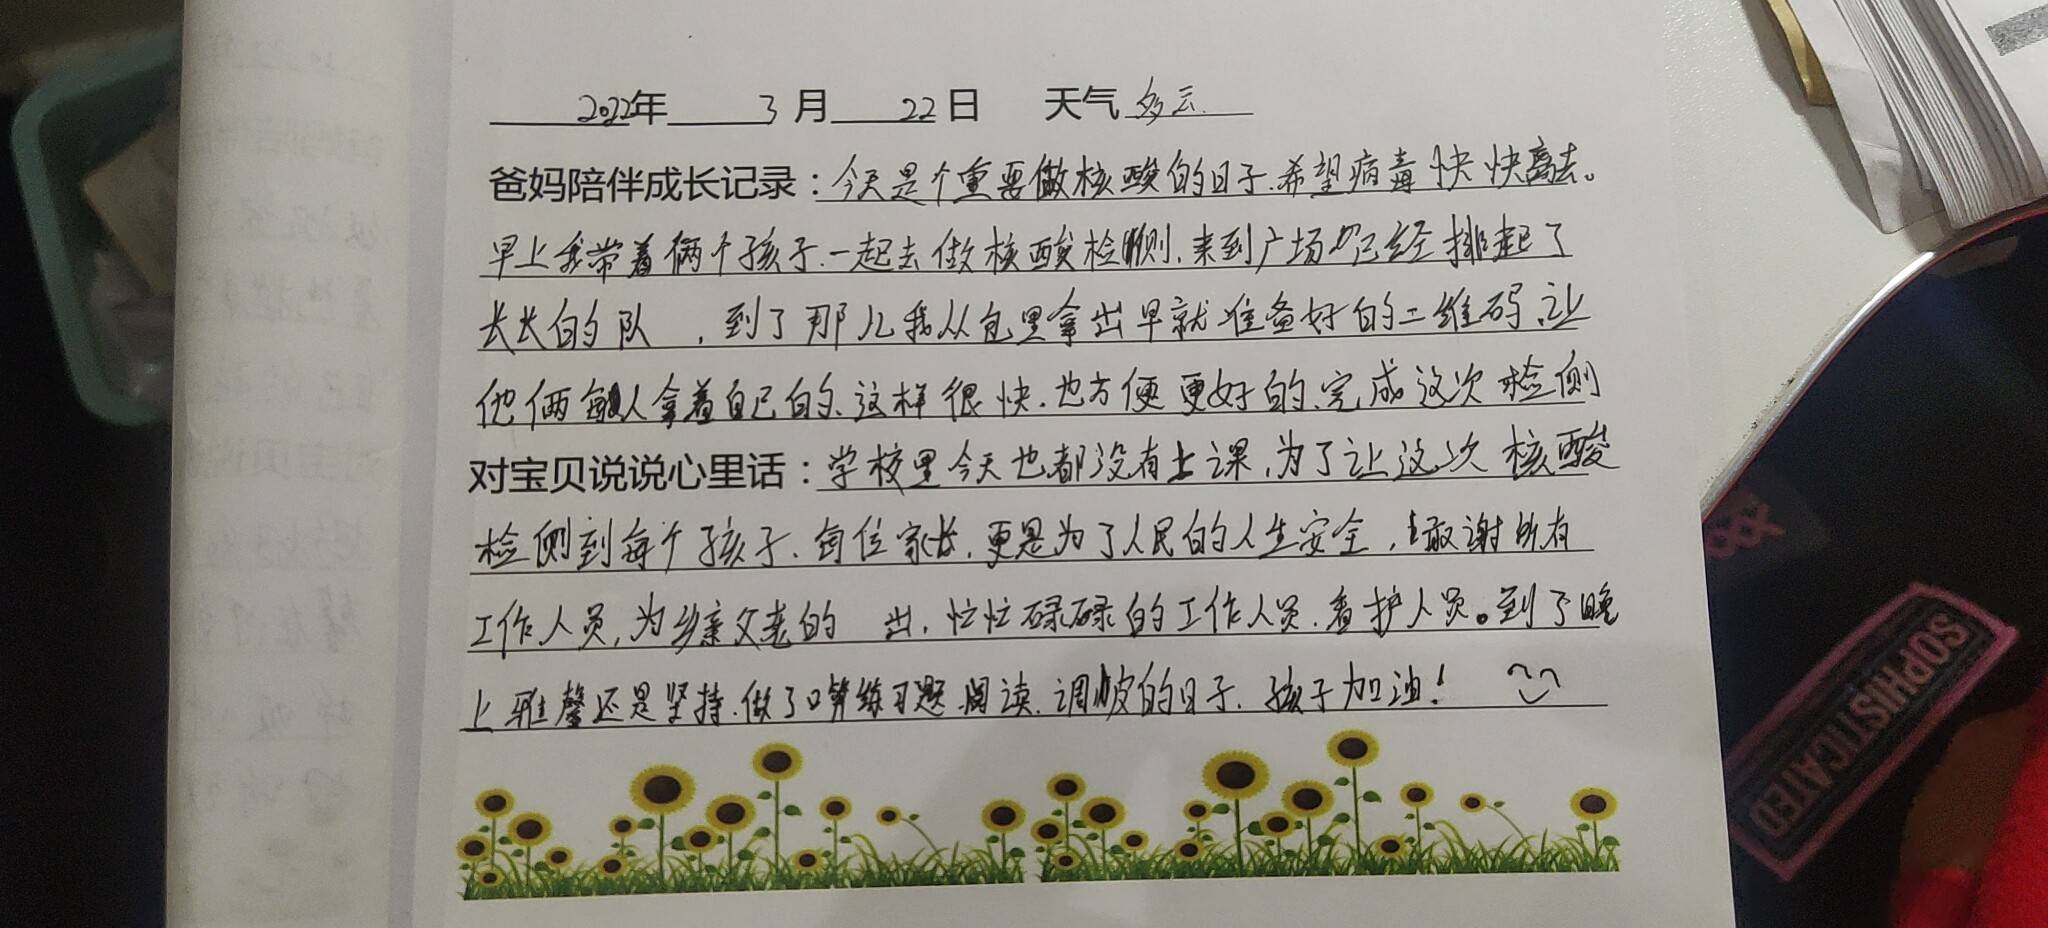 2022年 3 月 22 日 天气 多云.
爸妈陪伴成长记录：今天是个重要做核酸的日子.希望病毒快快离去。
早上我带着俩个孩子.一起去做核酸检测.来到广场已经排起了
长长的队 ,到了那儿我从包里拿出早就准备好的二维码让
他俩每人拿着自己的.这样很快.也方便更好的.完成这次检侧
对宝贝说说心里话：学校里今天也都没有上课,为了让这次核酸
检侧到每个孩子.每位家长,更是为了人民的人生安全, 谢所有
工作人员,为乡亲父老的 出,忙忙碌碌的工作人员.看护人员。到了晚
上雅馨还是坚持.做了口算练习题.阅读.调皮的日子.孩子加油!
SOPHISTICATED